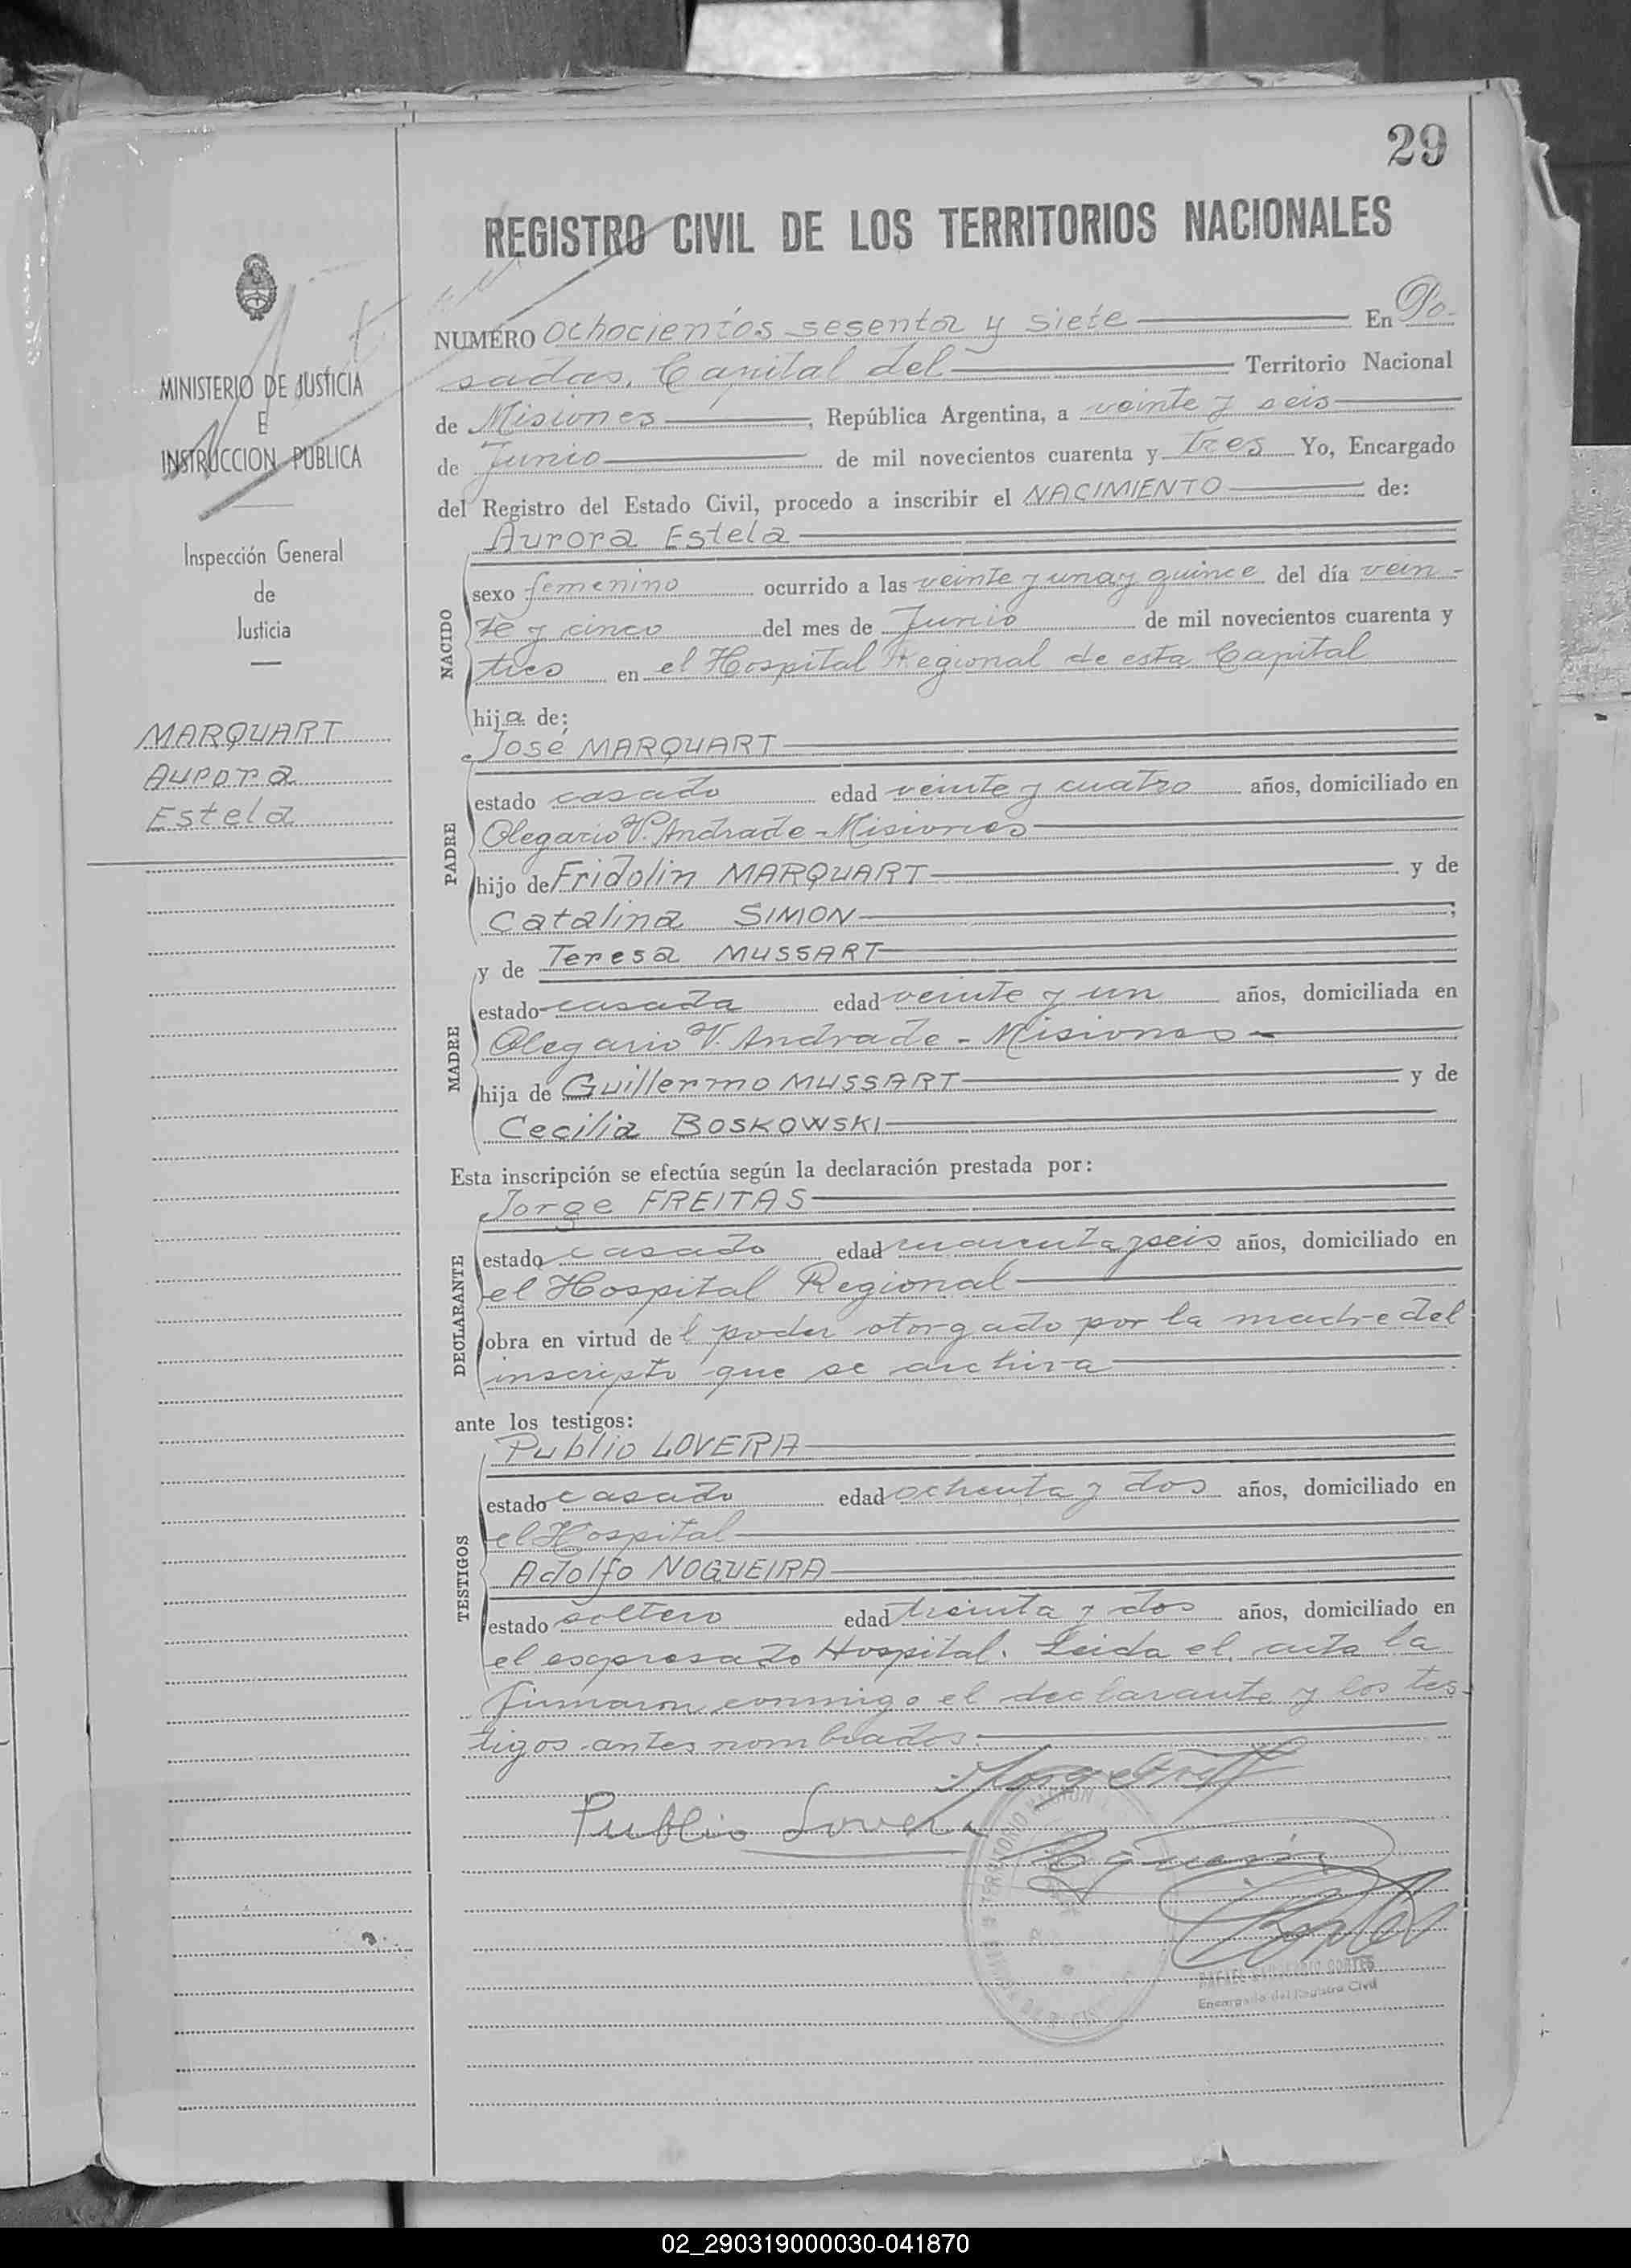 29
REGISTRO CIVIL DE LOS TERRITORIOS NACIONALES
MINISTERIO DE JUSTICIA
E
INSTRUCCION PUBLICA
Inspección General
de
Justicia
MARQUART
Aurora
Estela
NUMERO ochocientos sesenta y siete En Po-
sadas, Capital del Territorio Nacional
de Misiones, República Argentina, a veinte y seis
de Junio de mil novecientos cuarenta y tres Yo, Encargado
del Registro del Estado Civil, procedo a inscribir el NACIMIENTO de:
Aurora Estela
NACIDO
sexo femenino ocurrido a las veinte y una y quince del día vein-
te y cinco del mes de Junio de mil novecientos cuarenta y
tres en el Hospital Regional de esta Capital
hija de:
José MARQUART
PADRE
estado casado edad veinte y cuatro años, domiciliado en
Olegario V. Andrade - Misiones
hijo de Fridolin MARQUART y de
Catalina SIMON;
y de Teresa MUSSART
MADRE
estado casada edad veinte y un años, domiciliada en
Olegario V. Andrade - Misiones -
hija de Guillermo MUSSART y de
Cecilia BOSKOWSKI
Esta inscripción se efectúa según la declaración prestada por:
Jorge FREITAS
DECLARANTE
estado casado edad cuarenta y seis años, domiciliado en
el Hospital Regional
obra en virtud del poder otorgado por la madre del
inscripto que se archiva
ante los testigos:
Publio LOVERA
TESTIGOS
estado casado edad ochenta y dos años, domiciliado en
el Hospital
Adolfo NOGUEIRA
estado soltero edad treinta y dos años, domiciliado en
el esqpresado Hospital. Leida el acta la
firmaron conmigo el declarante y los tes-
tigos antes nombrados
Publio Lovera
Encargado del Registro Civil
02_290319000030-041870